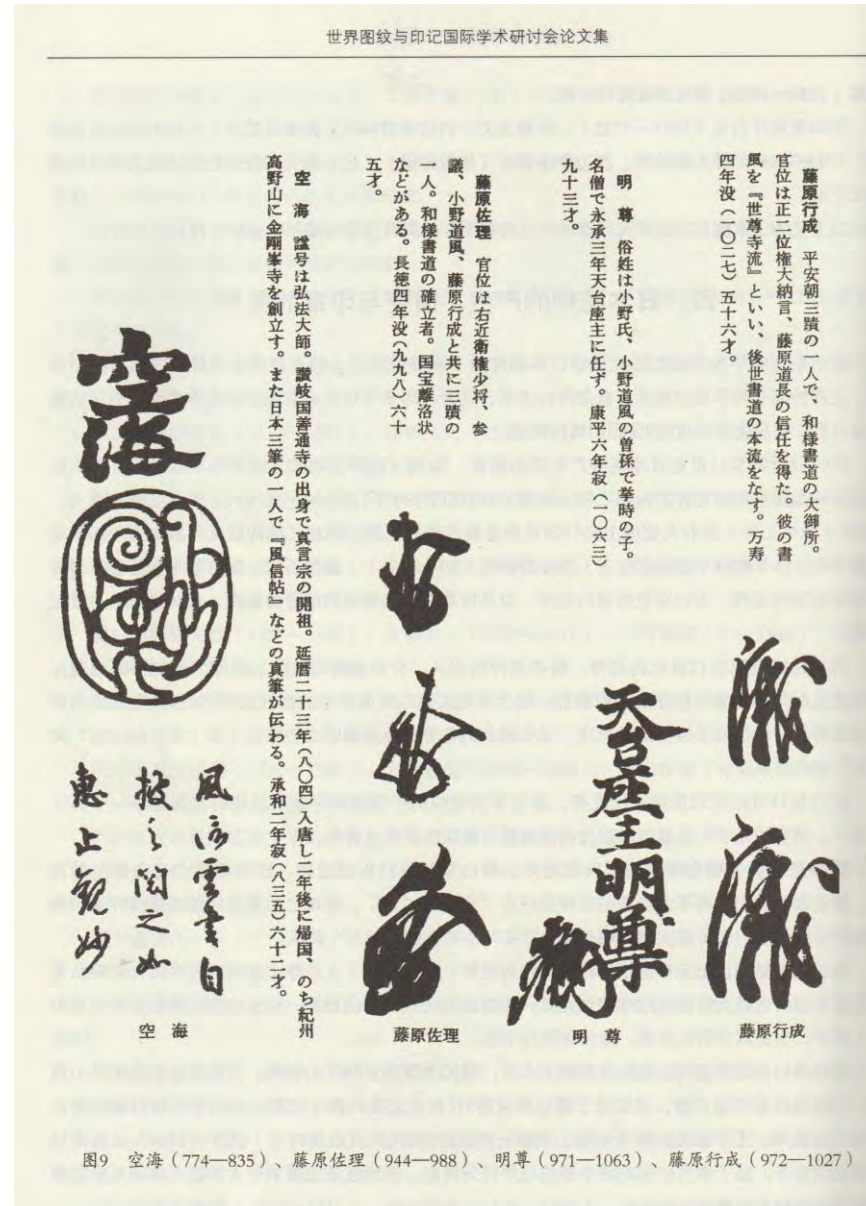 世界图纹与印记国际学术研讨会论文集
藤原行成　平安朝三蹟の一人で、和様書道の大御所。
官位は正二位権大納言、藤原道長の信任を得た。彼の書
風を『世尊寺流』といい、後世書道の本流をなす　万寿
四年没（一〇二七）五十六才。
明　尊　俗姓は小野氏、小野道風の曽孫で挙時の子。
名僧で永承三年天台座主に任ず。康平六年寂（一〇六三）
九十三才
藤原佐理　官位は右近衛権少将、参
議、小野道風、藤原行成と共に三蹟の
一人。和様書道の確立者。国宝離洛状
などがある。長徳四年没（九九八）六十
五才。
空　海　諡号は弘法大師　讃岐国善通寺の出身で真言宗の開祖　延暦二十三年（八〇四）入唐し二年後に帰国、のち紀州
高野山に金剛峯寺を創立す　また日本三筆の一人で『風信帖』などの真筆が伝わる。承和二年寂（八三五）六十二才。
台座主明尊
空海
風信雲書自
披之閲之如
惠止観妙
藤原行成
明　尊
藤原佐理
空　海
图9　空海（774—835）、藤原佐理（944—988）、明尊（971—1063）、藤原行成（972—1027）